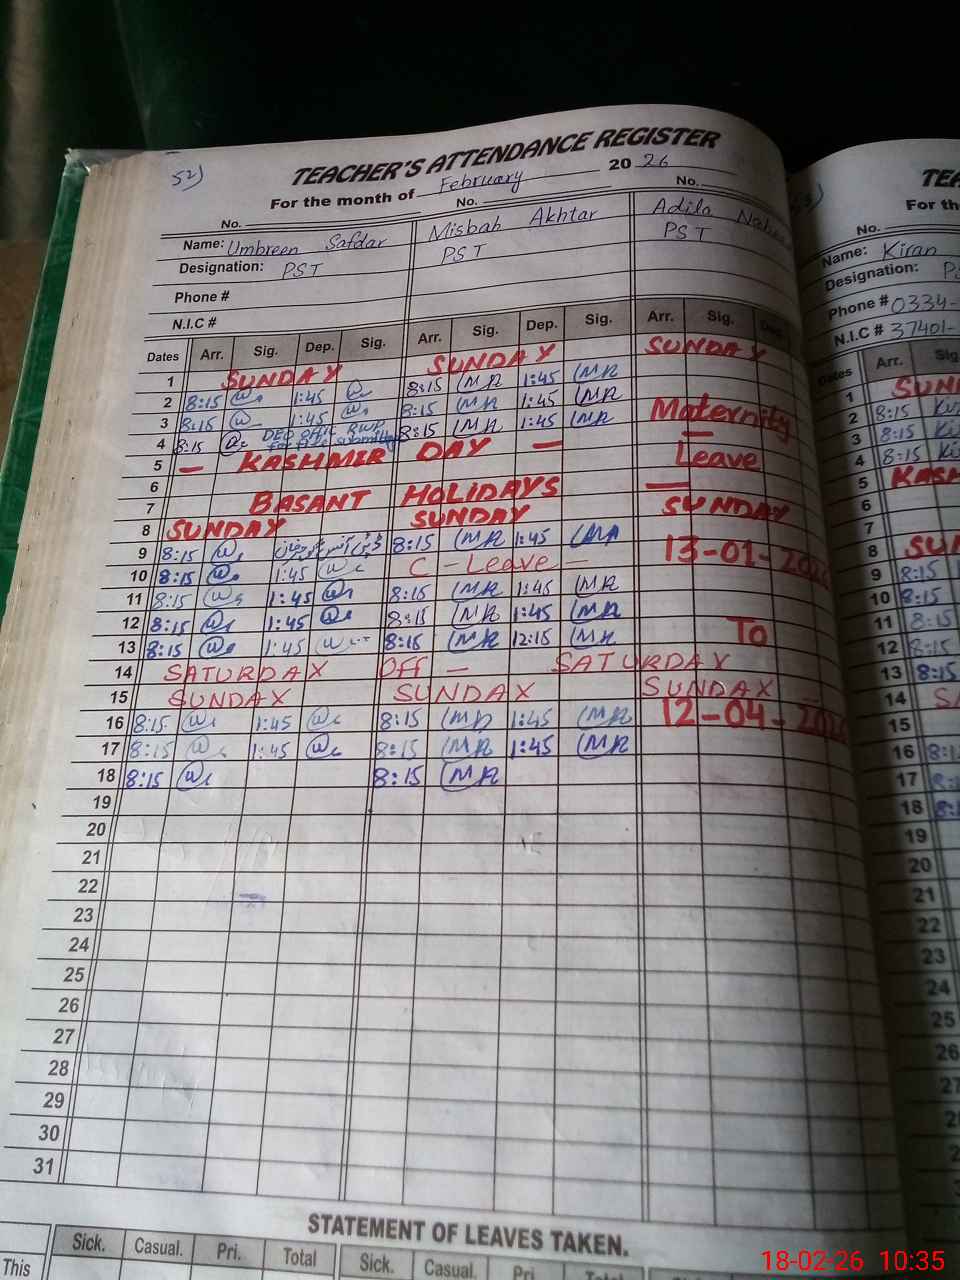 52)
TEACHER'S ATTENDANCE REGISTER
For the month of February 2026
No. No. No.
Name: Umbreen Safdar Misbah Akhtar Adila
Designation: PST PST PST
Phone #
N.I.C #
Dates Arr. Sig. Dep. Sig. Arr. Sig. Dep. Sig. Arr. Sig. Dep.
1 SUNDAY SUNDAY SUNDAY
2 8:15 1:45 8:15 MR 1:45 MR
3 8:15 1:45 8:15 MR 1:45 MR Maternity
4 8:15 DEO RWP 8:15 MR 1:45 MR
5 — KASHMIR DAY — Leave
6
7 BASANT HOLIDAYS
8 SUNDAY SUNDAY SUNDAY
9 8:15 8:15 MR 1:45 MR
10 8:15 1:45 C - Leave - 13-01-2026
11 8:15 1:45 8:15 MR 1:45 MR
12 8:15 1:45 8:15 MR 1:45 MR
13 8:15 1:45 8:15 MR 12:15 MR To
14 SATURDAY Off — SATURDAY
15 SUNDAY SUNDAY SUNDAY
16 8:15 1:45 8:15 MR 1:45 MR 12-04-2026
17 8:15 1:45 8:15 MR 1:45 MR
18 8:15 8:15 MR
19
20
21
22
23
24
25
26
27
28
29
30
31
STATEMENT OF LEAVES TAKEN.
Sick. Casual. Pri. Total Sick. Casual. Pri. Total
This
For th
No.
Name: Kiran
Designation:
Phone # 0334-
N.I.C # 37401-
Dates Arr.
1
2 8:15
3 8:15
4 8:15
5
6
7
8
9 8:15
10 8:15
11 8:15
12 8:15
13 8:15
14
15
16
17
18
19
20
21
22
23
24
25
26
18-02-26 10:35